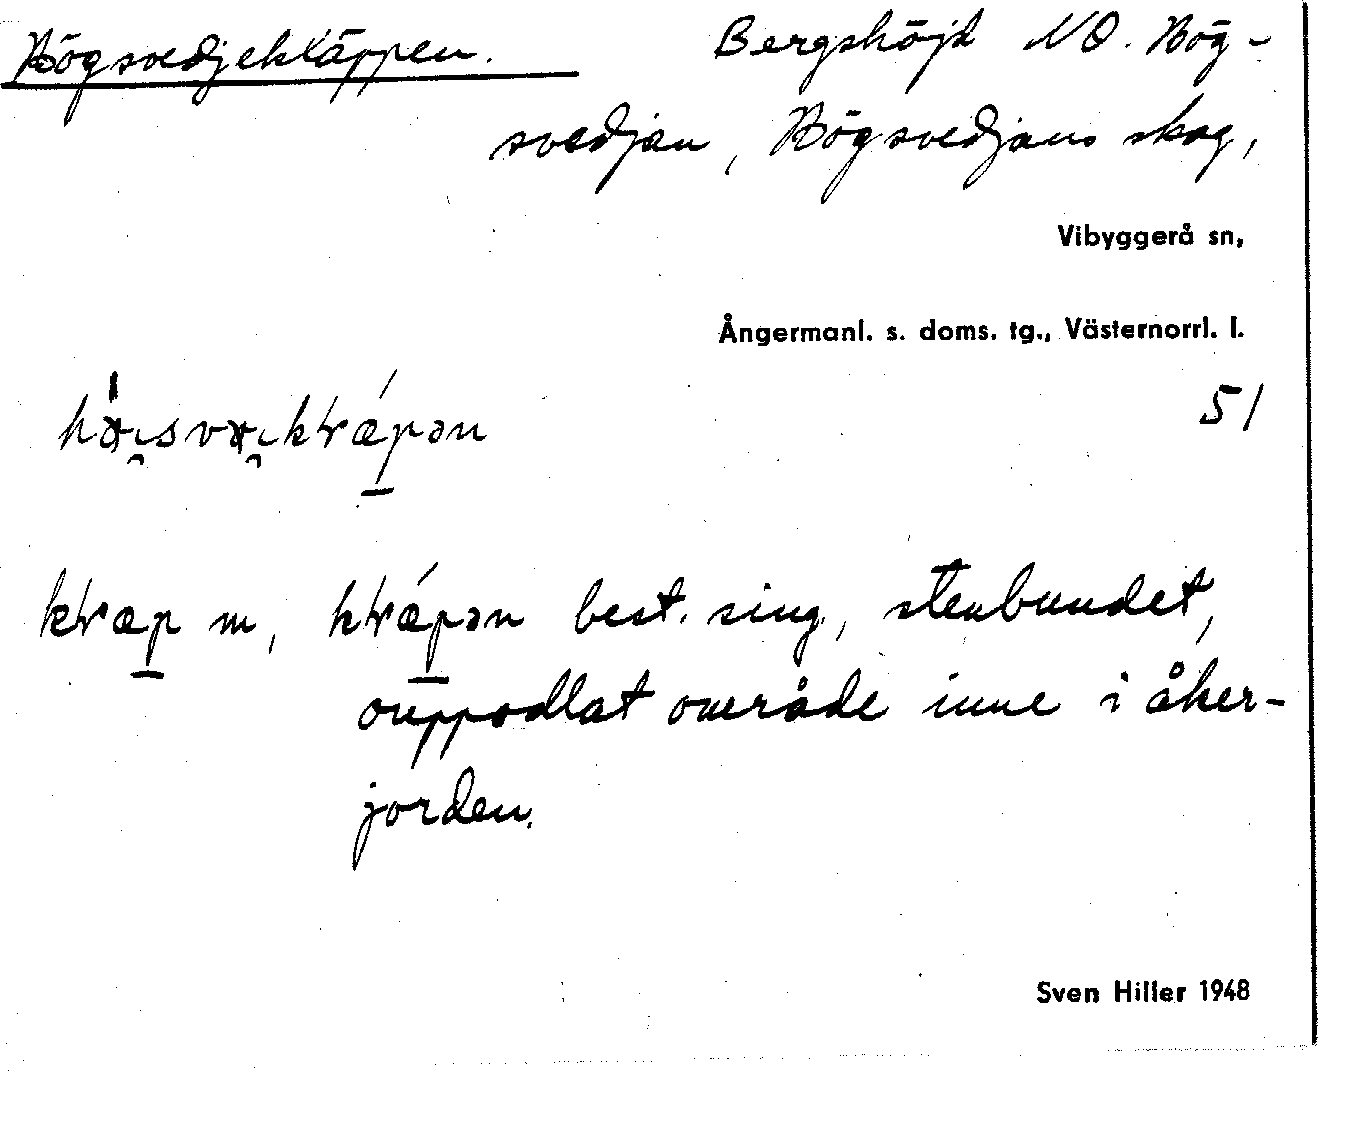 Högsvedjekläppen.
Bergshöjd NO. Hög-
svedjan, Högsvedjans skog,
Vibyggerå sn,
Ångermanl. s. doms. tg., Västernorrl. l.
51
best. sing., stenbundet,
ouppodlat område inne i åker-
jorden.
Sven Hiller 1948